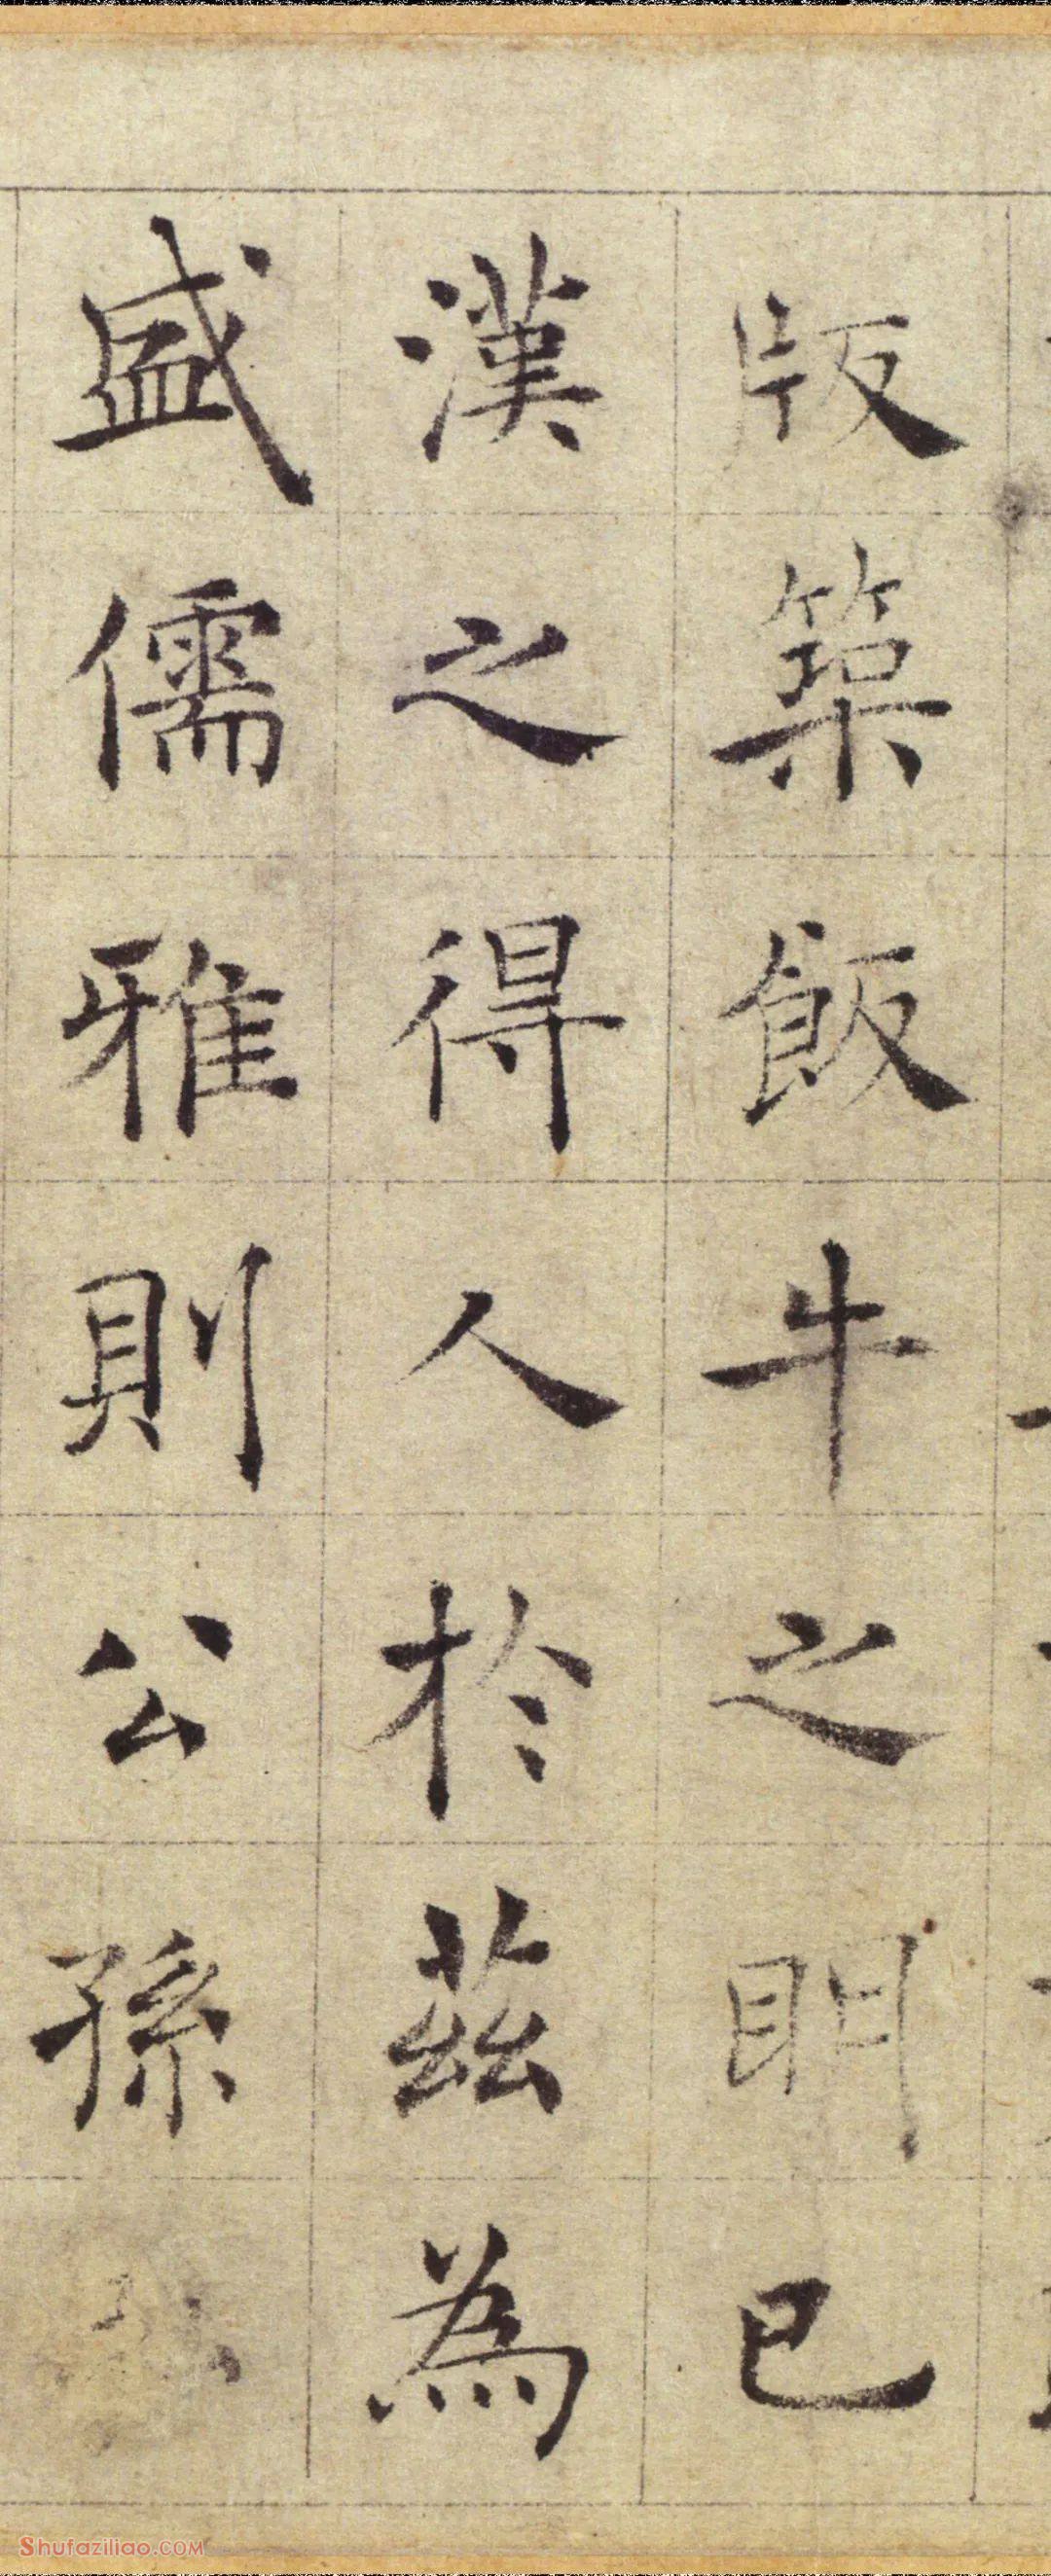 版築飯牛之明已
漢之得人於茲為
盛儒雅則公孫
Shufaziliao.COM